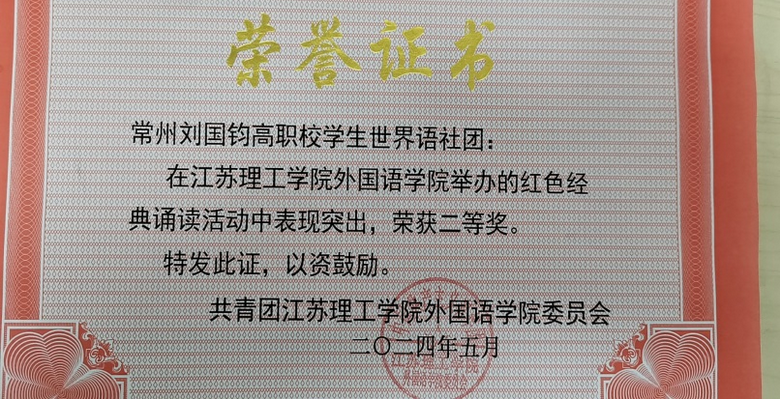 荣誉证书
常州刘国钧高职校学生世界语社团：
在江苏理工学院外国语学院举办的红色经
典诵读活动中表现突出，荣获二等奖。
特发此证，以资鼓励。
共青团江苏理工学院外国语学院委员会
二〇二四年五月
江苏理工学院
外国语学院委员会